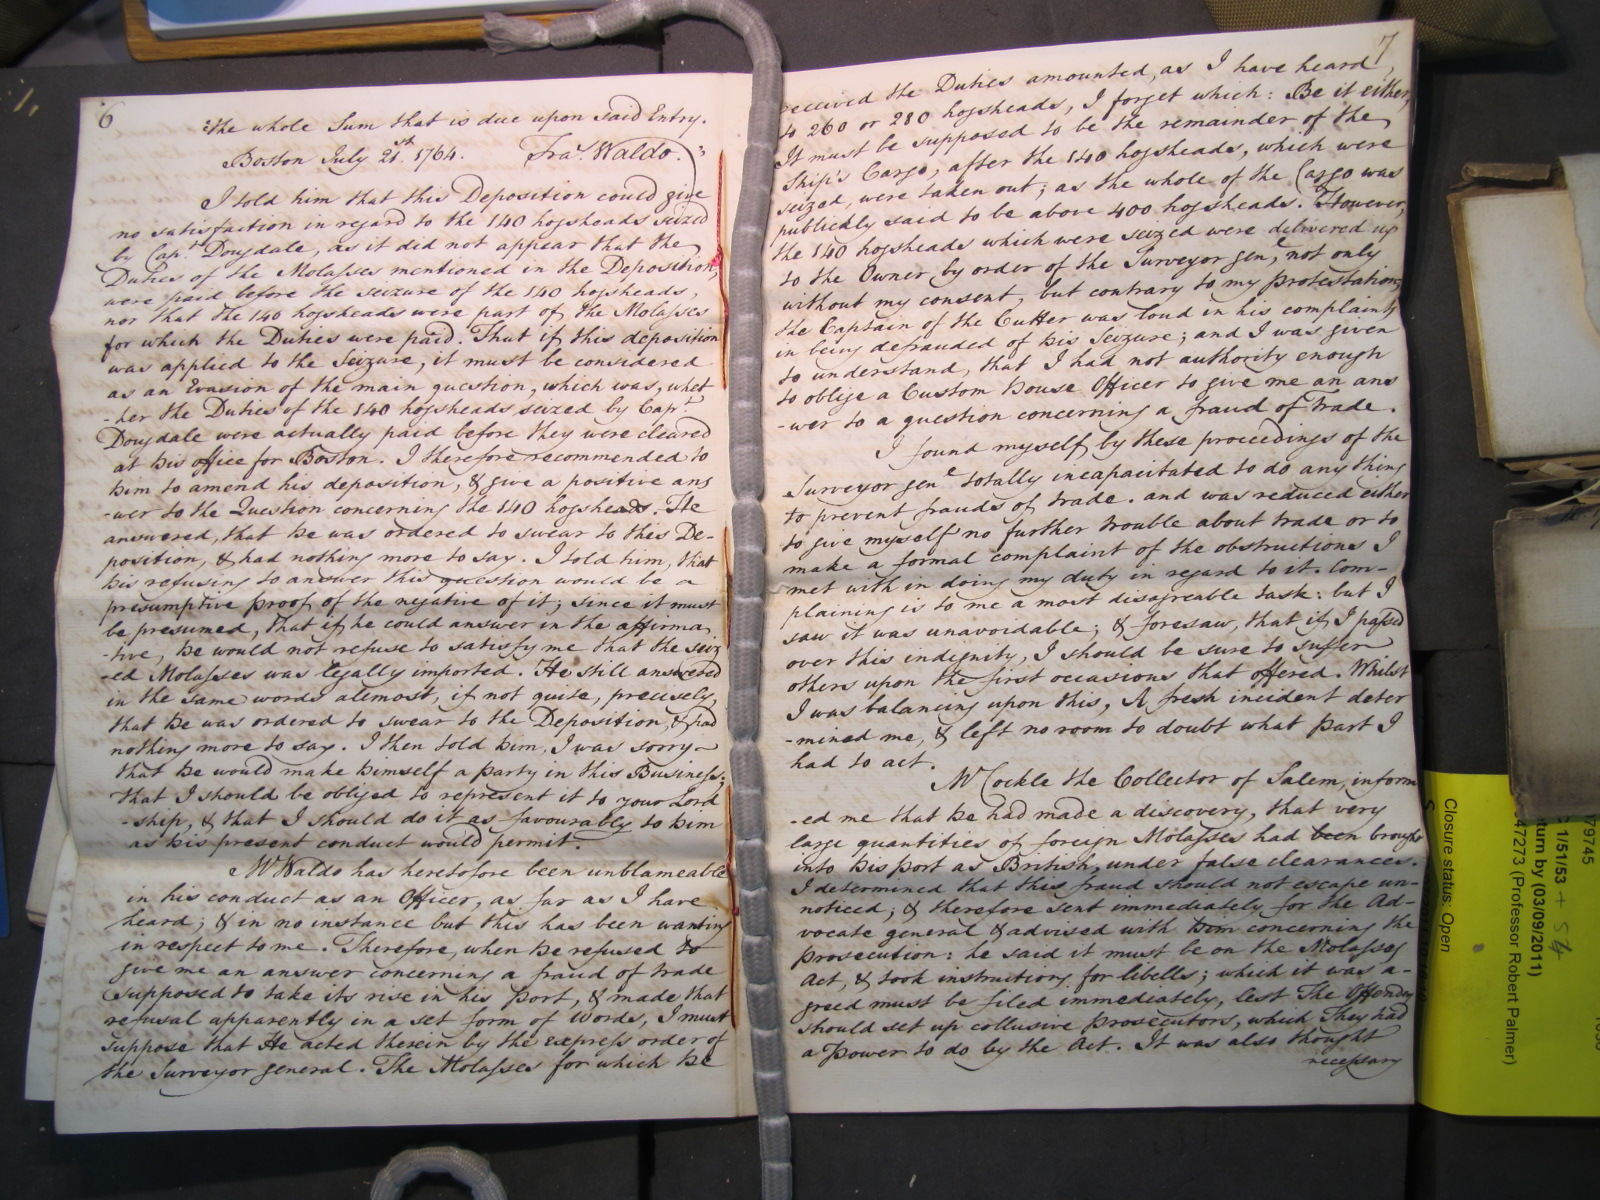 6
the whole Sum that is due upon said Entry.
Boston July 21st. 1764. Fra.s Waldo.
I told him that this Deposition could give
no satisfaction in regard to the 140 hogsheads seized
by Capt. Dougdale, as it did not appear that the
Duties of the Molasses mentioned in the Deposition,
were paid before the seizure of the 140 hogsheads,
nor that the 140 hogsheads were part of the Molasses
for which the Duties were paid. That if this deposition
was applied to the Seizure, it must be considered
as an Evasion of the main question, which was, whet
-her the Duties of the 140 hogsheads seized by Capt.
Dougdale were actually paid before they were cleared
at his office for Boston. I therefore recommended to
him to amend his deposition, & give a positive ans
-wer to the Question concerning the 140 hogsheads. He
answered, that he was ordered to swear to this De-
position, & had nothing more to say. I told him, that
his refusing to answer this question would be a
presumptive proof of the negative of it; since it must
be presumed, that if he could answer in the affirma
-tive, he would not refuse to satisfy me that the seiz
-ed Molasses was legally imported. He still answered
in the same words allmost, if not quite, precisely,
that he was ordered to swear to the Deposition, & had
nothing more to say. I then told him, I was sorry
that he would make himself a party in this Business;
that I should be obliged to represent it to your Lord
-ship, & that I should do it as favourably to him
as his present conduct would permit.
Mr Waldo has heretofore been unblameable
in his conduct as an Officer, as far as I have
heard; & in no instance but this has been wanting
in respect to me. Therefore, when he refused to
give me an answer concerning a fraud of trade
supposed to take its rise in his port, & made that
refusal apparently in a set form of Words, I must
suppose that He acted therein by the express order of
the Surveyor general. The Molasses for which he
7
received the Duties amounted, as I have heard,
to 260 or 280 hogsheads, I forget which: Be it either,
It must be supposed to be the remainder of the
Ship's Cargo, after the 140 hogsheads, which were
seized, were taken out; as the whole of the Cargo was
publickly said to be above 400 hogsheads. However,
the 140 hogsheads which were seized were delivered up
to the Owner by order of the Surveyor genl, not only
without my consent, but contrary to my protestations
the Captain of the Cutter was loud in his complaints
in being defrauded of his Seizure; and I was given
to understand, that I had not authority enough
to oblige a Custom house Officer to give me an ans
-wer to a question concerning a fraud of trade.
I found myself by these proceedings of the
Surveyor genl totally incapacitated to do any thing
to prevent frauds of trade. and was reduced either
to give myself no further trouble about trade or to
make a formal complaint of the obstructions I
met with in doing my duty in regard to it. Com-
plaining is to me a most disagreable task: but I
saw it was unavoidable; & foresaw, that if I passed
over this indignity, I should be sure to suffer
others upon the first occasions that offered. Whilst
I was balancing upon this, A fresh incident deter
-mined me, & left no room to doubt what part I
had to act.
Mr Cockle the Collector of Salem, inform
-ed me that he had made a discovery, that very
large quantities of foreign Molasses had been brought
into his port as British, under false clearances.
I determined that this fraud should not escape un-
noticed; & therefore sent immediately for the Ad-
vocate general & advised with him concerning the
prosecution: he said it must be on the Molasses
Act, & took instructions for libells; which it was a-
greed must be filed immediately, lest The Offenders
should set up collusive prosecutors, which They had
a Power to do by the Act. It was also thought
necessary
Closure status: Open
C 1/51/53 + 54
turn by (03/09/2011)
47273 (Professor Robert Palmer)
79745